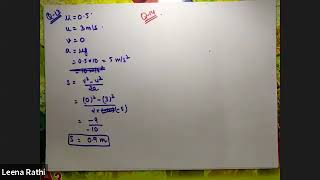 Q-13 μ = 0.5
u = 3m/s
v = 0
a = μg
= 0.5×10 = 5 m/s²
S = v² - u² / 2a
= (0)² - (3)² / 2×(-5)
= -9 / -10
S = 0.9 m
Q-14
Leena Rathi